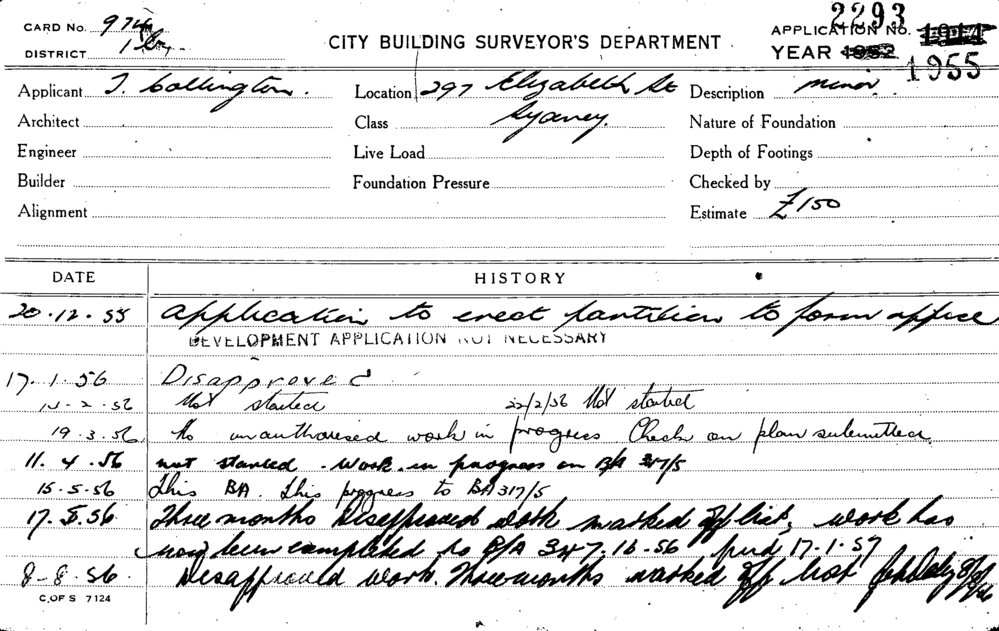 CARD No. 974
DISTRICT
CITY BUILDING SURVEYOR'S DEPARTMENT
2293
APPLICATION No. 1914
YEAR 1952 1955
Applicant T. Collington. Location 297 Elizabeth St Description minor.
Architect Class Sydney. Nature of Foundation
Engineer Live Load Depth of Footings
Builder Foundation Pressure Checked by
Alignment Estimate £150
DATE HISTORY
20.12.55 Application to erect partition to form office
DEVELOPMENT APPLICATION NOT NECESSARY
17.1.56 Disapproved
2.56 Not started 22/2/56 Not started
19.3.56 No unauthorised work in progress Check on plan submitted.
11.4.56 not started. Work in progress on B/A
15.5.56 This BA. This progress to BA 317/5
17.5.56 Three months Disapproved work marked off list, work has
now been completed to B/A 17.1.57
8-8-56. Disapproved work. Three months marked off list
C. OF S 7124